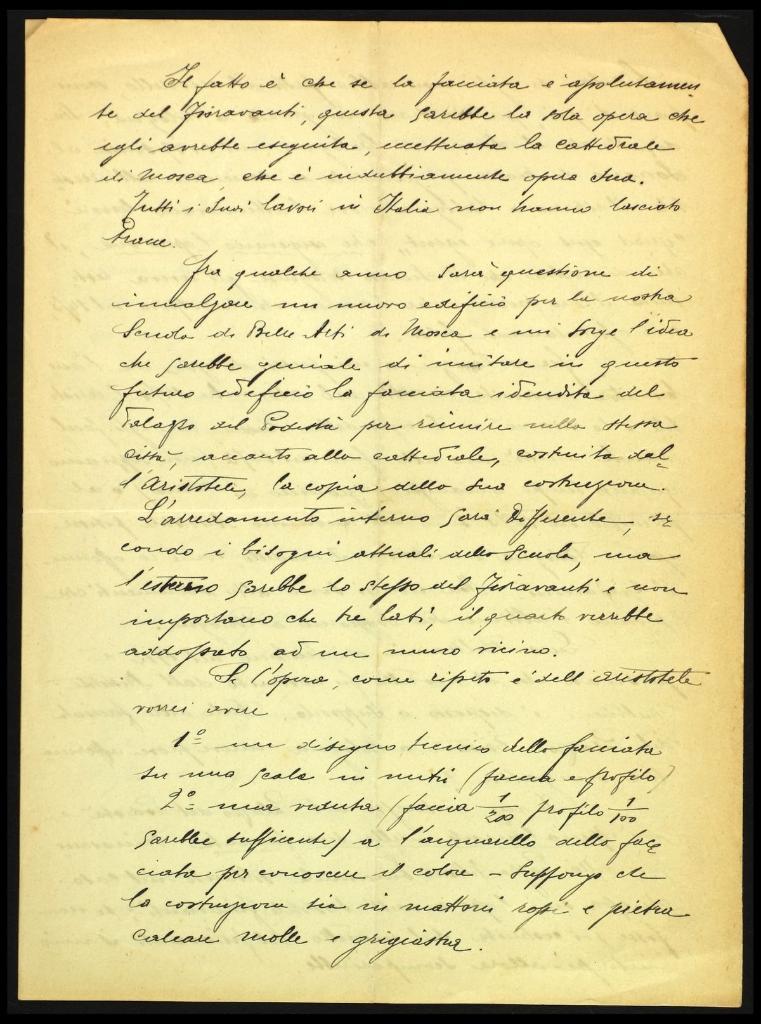 Il fatto è che se la facciata è assolutamen-
te del Fioravanti, questa sarebbe la sola opera che
egli avrebbe eseguita, eccettuata la cattedrale
di Mosca, che è indubbiamente opera sua.
Tutti i suoi lavori in Italia non hanno lasciato
tracce.
Fra qualche anno sarà questione di
innalzare un nuovo edificio per la nostra
Scuola di Belle Arti di Mosca e mi sorge l'idea
che sarebbe geniale di imitare in questo
futuro edeficio la facciata idendita del
Palazzo del Podestà per riunire nella stessa
città, accanto alla cattedrale, costruita dal-
l'Aristotele, la copia della sua costruzione.
L'arredamento interno sarà differente, se-
condo i bisogni attuali della Scuola, ma
l'esterno sarebbe lo stesso del Fioravanti e non
importano che tre lati, il quarto verrebbe
addossato ad un muro vicino.
Se l'opera, come ripeto è dell'Aristotele
vorrei avere
1º un disegno tecnico della facciata
su una scala in metri (faccia e profilo)
2º una veduta (faccia 1/200 profilo 1/100
sarebbe sufficente) a l'acquarello della fac-
ciata per conoscere il colore – Suppongo che
la costruzione sia in mattoni rossi e pietra
calcare molle e grigiastra.